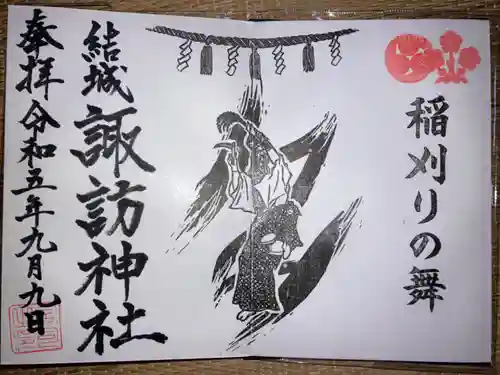 稲刈りの舞
結城 諏訪神社
奉拝 令和五年九月九日